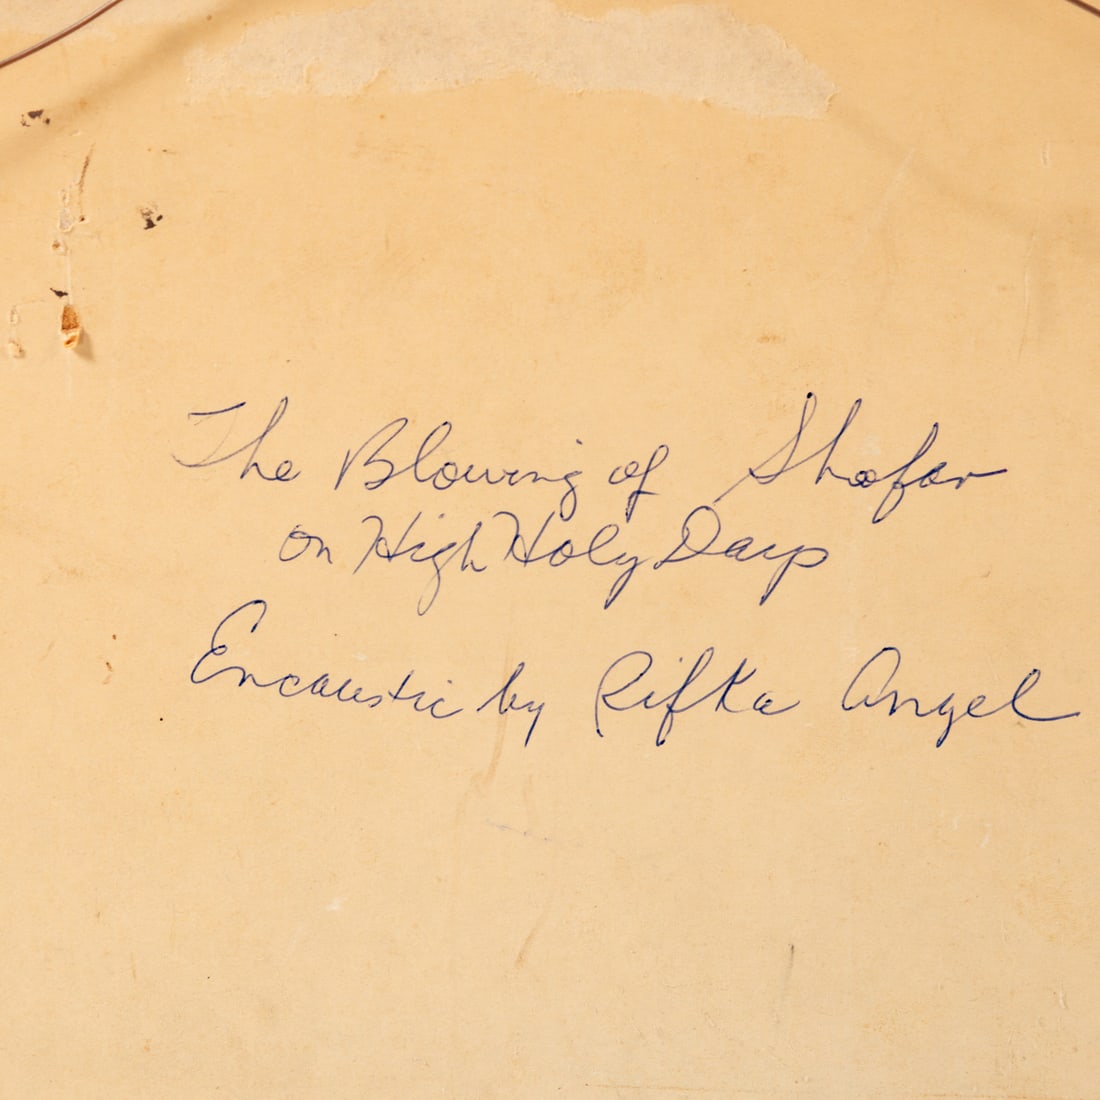 The Blowing of Shofar
on High Holy Days
Encaustic by Rifka Angel